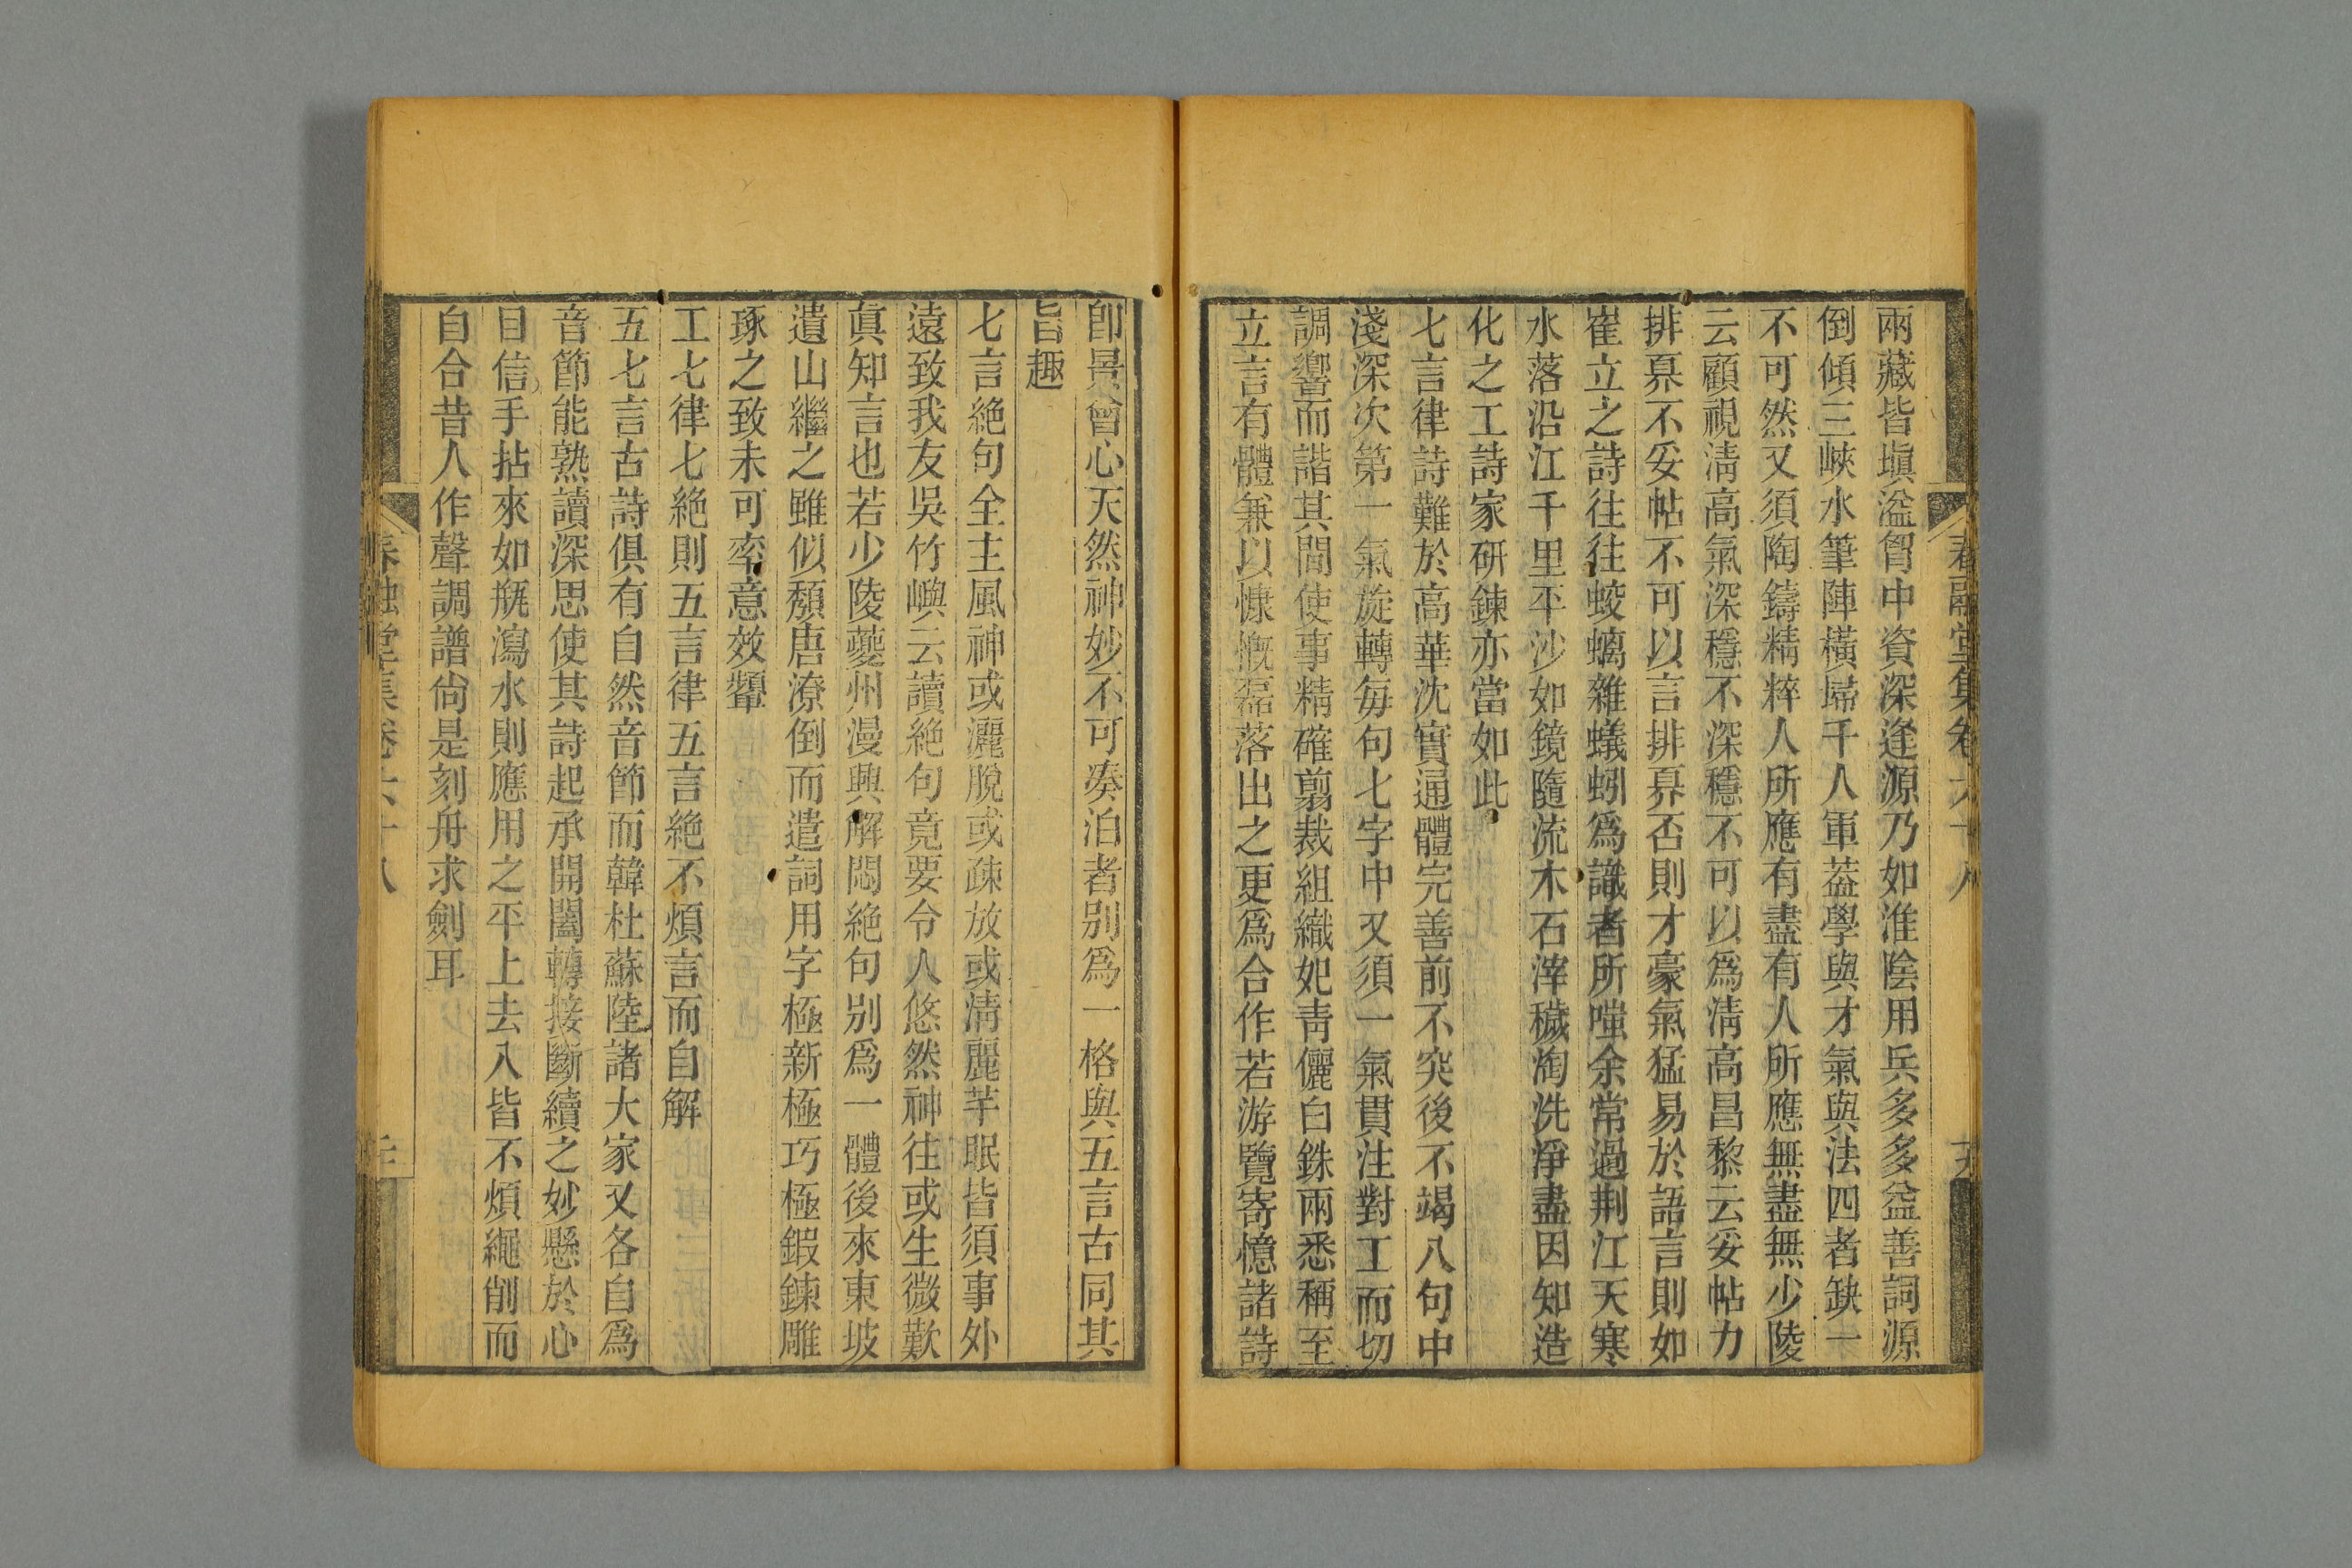 春融堂集卷六十八
兩藏皆塡溢胷中資深逢源乃如淮陰用兵多多益善詞源
倒傾三峽水筆陣橫埽千人軍葢學與才氣與法四者缺一
不可然又須陶鑄精粹人所應有盡有人所應無盡無少陵
云顧視淸高氣深穩不深穩不可以爲淸高昌黎云妥帖力
排奡不妥帖不可以言排奡否則才豪氣猛易於語言則如
崔立之詩往往蛟螭雜蟻蚓爲識者所嗤余常過荆江天寒
水落沿江千里平沙如鏡隨流木石滓穢淘洗淨盡因知造
化之工詩家研鍊亦當如此
七言律詩難於高華沈實通體完善前不突後不竭八句中
淺深次第一氣旋轉每句七字中又須一氣貫注對工而切
調響而諧其間使事精確翦裁組織妃靑儷白銖兩悉稱至
立言有體兼以慷慨磊落出之更爲合作若游覽寄憶諸詩
卽景會心天然神妙不可湊泊者別爲一格與五言古同其
旨趣
七言絶句全主風神或灑脫或疎放或淸麗芊眠皆須事外
遠致我友吳竹嶼云讀絶句竟要令人悠然神往或生微歎
眞知言也若少陵夔州漫興解悶絶句別爲一體後來東坡
遺山繼之雖似頽唐潦倒而遣詞用字極新極巧極鍜鍊雕
琢之致未可率意效顰
工七律七絶則五言律五言絶不煩言而自解
五七言古詩俱有自然音節而韓杜蘇陸諸大家又各自爲
音節能熟讀深思使其詩起承開闔轉接斷續之妙懸於心
目信手拈來如甁瀉水則應用之平上去入皆不煩繩削而
自合昔人作聲調譜尙是刻舟求劍耳
春融堂集卷六十八